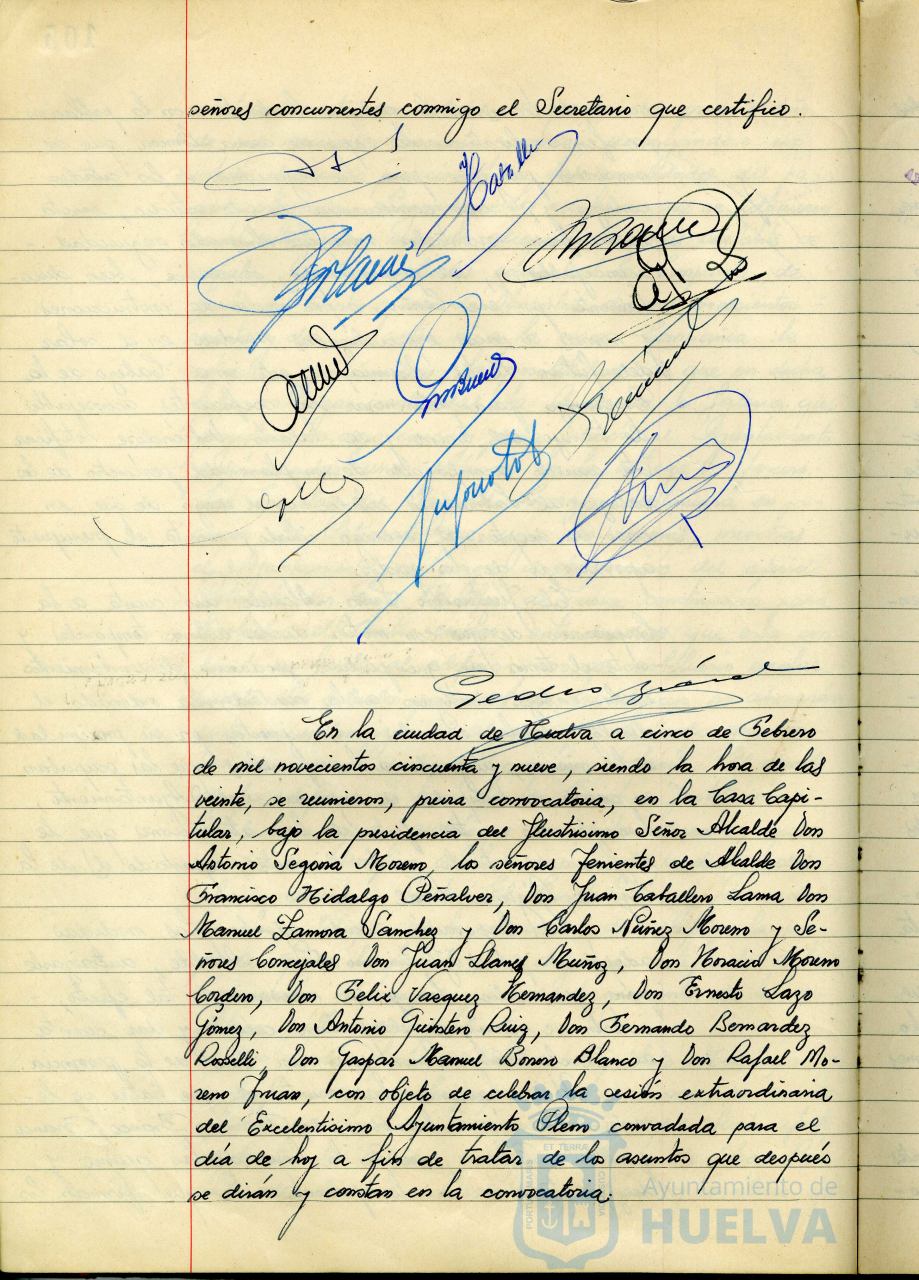 señores concurrentes conmigo el Secretario que certifico.
Pedro
En la ciudad de Huelva a cinco de Febrero
de mil novecientos cincuenta y nueve, siendo la hora de las
veinte, se reunieron, previa convocatoria, en la Casa Capi-
tular, bajo la presidencia del Ilustrisimo Señor Alcalde Don
Antonio Segovia Moreno, los señores Tenientes de Alcalde Don
Francisco Hidalgo Peñalver, Don Juan Caballero Lama Don
Manuel Zamora Sánchez y Don Carlos Núñez Moreno y Se-
ñores Concejales Don Juan Llanes Muñoz, Don Horacio Moreno
Cordero, Don Felix Vasquez Hernandez, Don Ernesto Lazo
Gómez, Don Antonio Quintero Ruiz, Don Fernando Bernardez
Rosselli, Don Gaspar Manuel Bonoso Blanco y Don Rafael Mo-
reno, con objeto de celebrar la sesión extraordinaria
del Excelentisimo Ayuntamiento Pleno convocada para el
día de hoy a fin de tratar de los asuntos que después
se dirán y constan en la convocatoria.
Ayuntamiento de
HUELVA